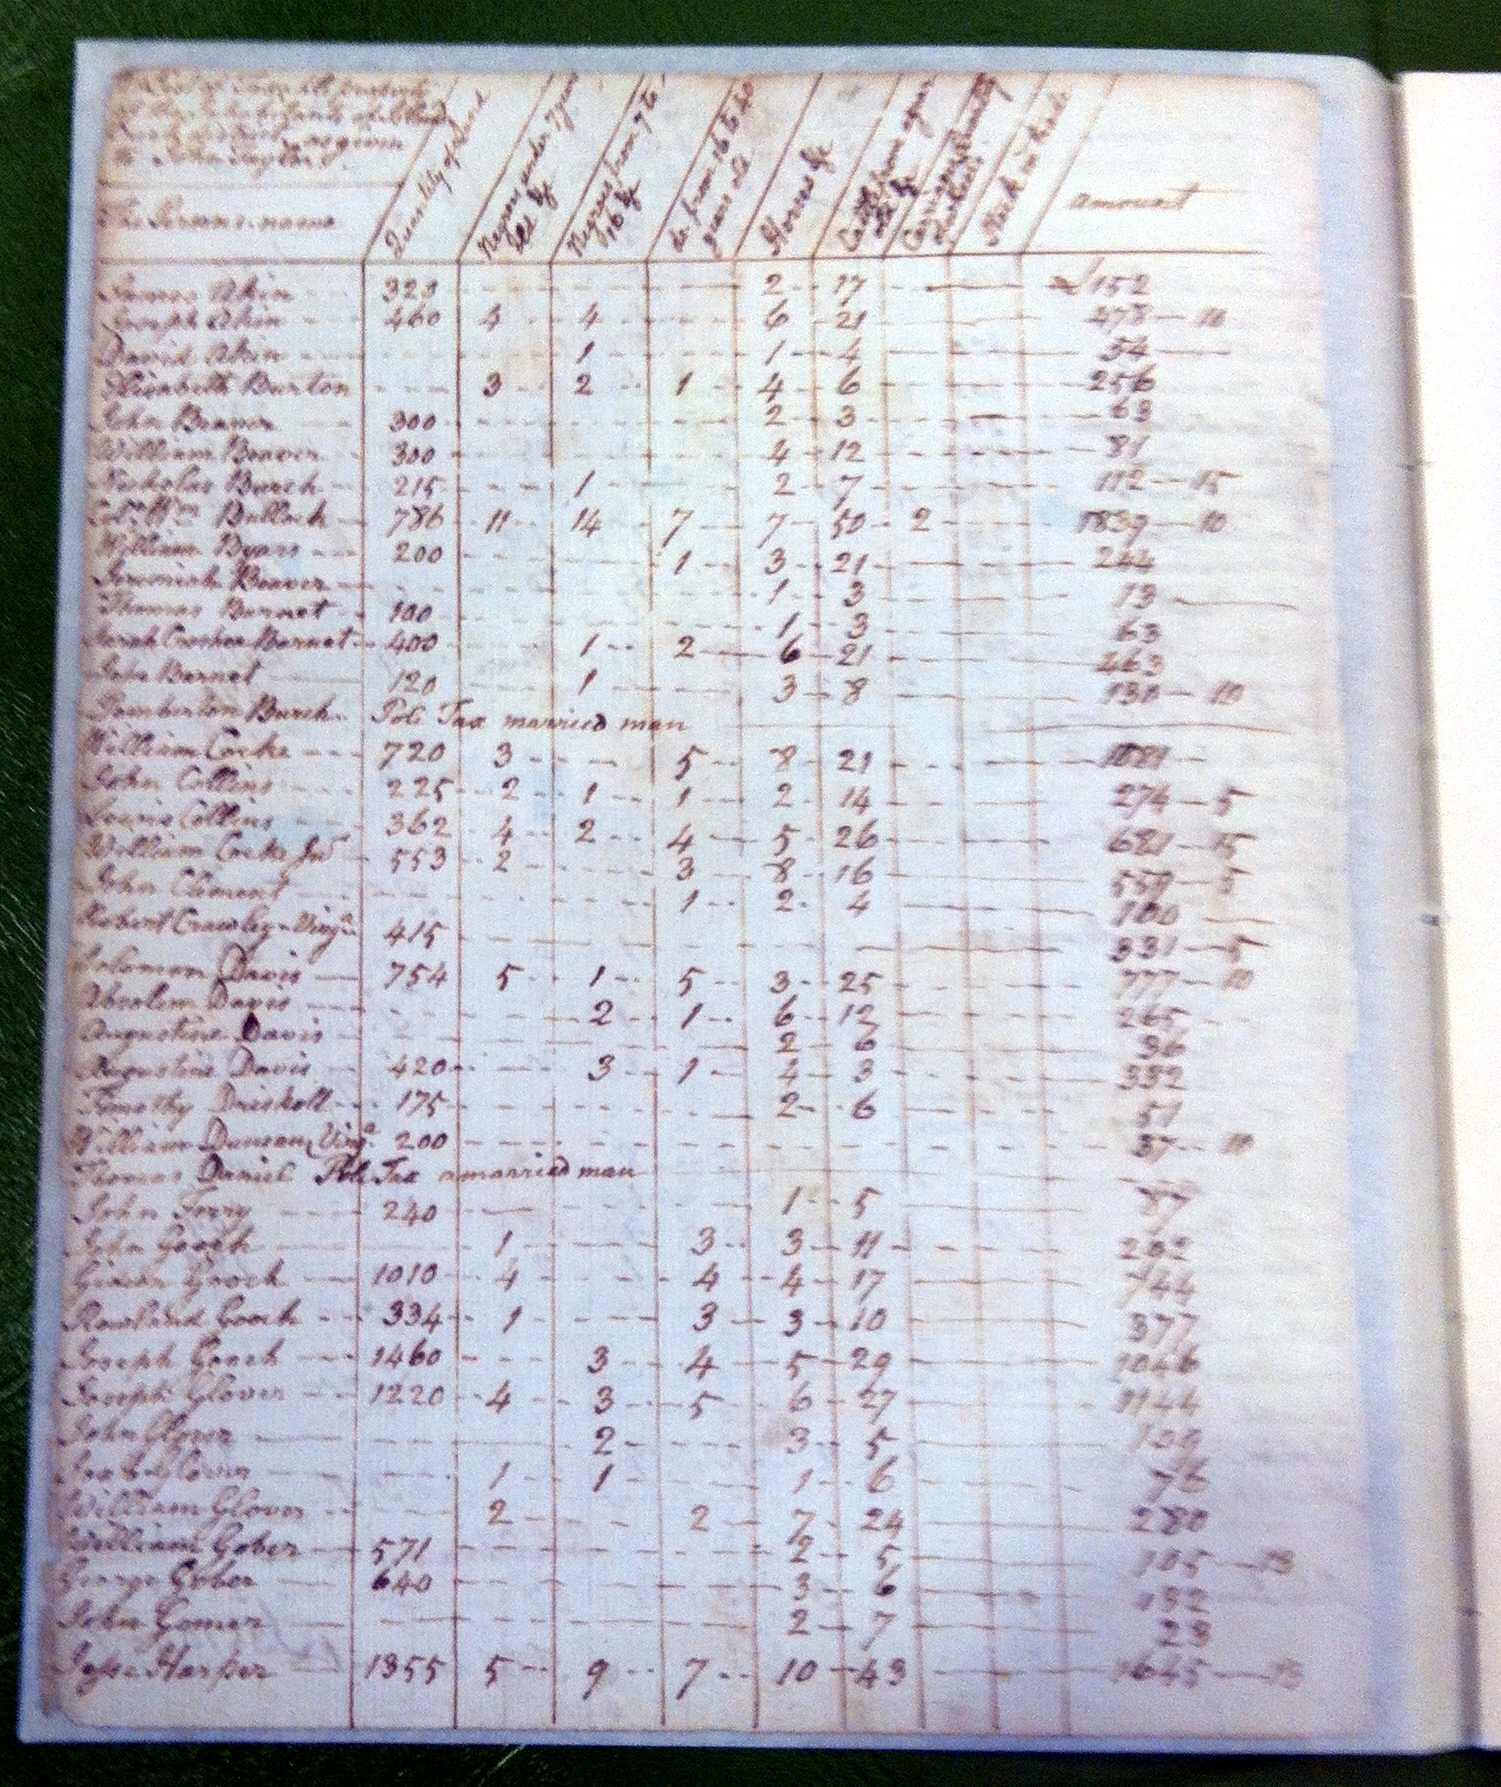 of the Inhabitants of
district as given
to John Taylor
The Persons name
Quantity of Land
Negroes under 7 years old &c
Negroes from 7 to 16 &c
do from 16 to 40 years old
Horses &c
Cattle from years old &c
Stock in trade
amount
James Akin 323 2 17 £152
Joseph Akin 460 4 4 6 21 478 10
David Akin 1 1 4 54
Elizabeth Burton 3 2 1 4 6 256
John Beaver 300 2 3 63
William Beaver 300 4 12 81
Nicholas Burch 215 1 2 7 112 15
Colo Wm Bullock 786 11 14 7 7 50 2 1839 10
William Byars 200 1 3 21 244
Jeremiah Beaver 1 3 13
Thomas Burnet 100 1 3 63
Sarah Crosher Burnet 400 1 2 6 21 463
John Burnet 120 1 3 8 130 10
Pemberton Burch Pole Tax married man
William Cocke 720 3 5 8 21 1081
John Collins 225 2 1 1 2 14 274 5
Lewis Collins 362 4 2 4 5 26 621 15
William Cocke Junr 553 2 3 8 16 559 5
John Clement 1 2 4 100
Robert Crawley Virga 415 331 5
Solomon Davis 754 5 1 5 3 25 777 10
Absolem Davis 2 1 6 12 265
Augustine Davis 2 6 36
Augustine Davis 420 3 1 4 3 332
Timothy Driskell 175 2 6 51
William Duncan Virga 200 37 10
Thomas Daniel Pole Tax a married man
John Ferry 240 1 5 87
John Gooch 1 3 3 11 282
Gideon Gooch 1010 4 4 4 17 744
Rowland Gooch 334 1 3 3 10 377
Joseph Gooch 1460 3 4 5 29 1046
Joseph Glover 1220 4 3 5 6 27 1144
John Glover 2 3 5 109
Glover 1 1 1 6 76
William Glover 2 2 7 24 280
William Gober 571 2 5 105 13
George Gober 640 3 6 132
John Gomer 2 7 23
Jesse Harper 1355 5 9 7 10 43 1645 13